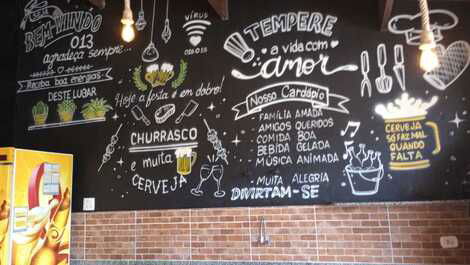 BEM-VINDO
013
agradeça sempre...
Receba boas energias
DESTE LUGAR
VÍRUS
Hoje a festa é em dobro!
CHURRASCO
e muita
CERVEJA
TEMPERE
a vida com
amor
Nosso Cardápio
FAMÍLIA AMADA
AMIGOS QUERIDOS
COMIDA BOA
BEBIDA GELADA
MÚSICA ANIMADA
MUITA ALEGRIA
DIVIRTAM-SE
CERVEJA
SÓ FAZ MAL
QUANDO
FALTA